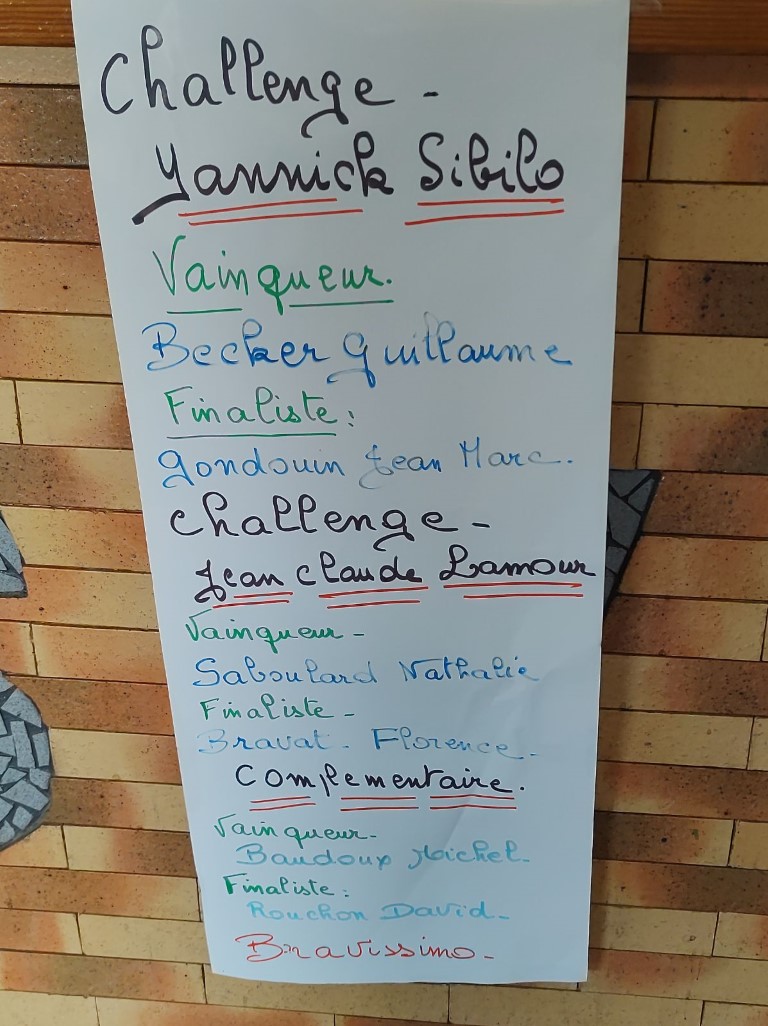 Challenge -
Yannick Sibilo
Vainqueur.
Becker Guillaume
Finaliste :
Gondouin Jean Marc.
Challenge -
Jean Claude Lamour
Vainqueur -
Saboulard Nathalie
Finaliste -
Bravat. Florence -
Complementaire.
Vainqueur -
Baudoux Michel -
Finaliste :
Rouchon David -
Bravissimo -